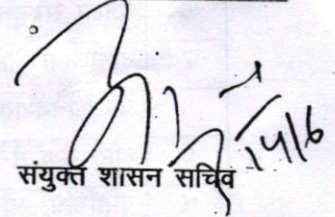 14/6
संयुक्त शासन सचिव